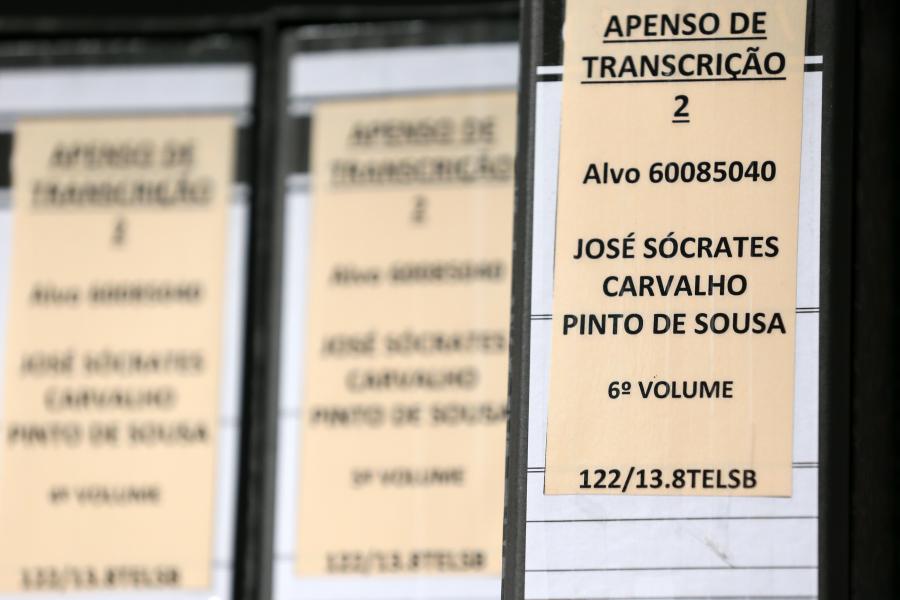 APENSO DE
TRANSCRIÇÃO
2
Alvo 60085040
JOSÉ SÓCRATES
CARVALHO
PINTO DE SOUSA
4º VOLUME
122/13.8TELSB
APENSO DE
TRANSCRIÇÃO
2
Alvo 60085040
JOSÉ SÓCRATES
CARVALHO
PINTO DE SOUSA
5º VOLUME
122/13.8TELSB
APENSO DE
TRANSCRIÇÃO
2
Alvo 60085040
JOSÉ SÓCRATES
CARVALHO
PINTO DE SOUSA
6º VOLUME
122/13.8TELSB